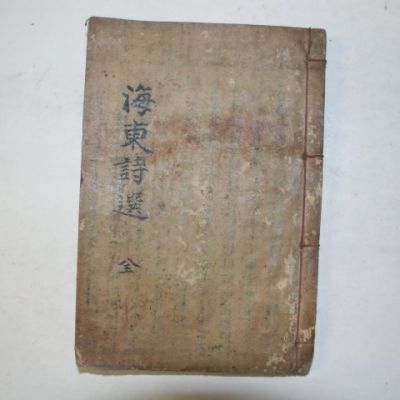 海東詩選
全